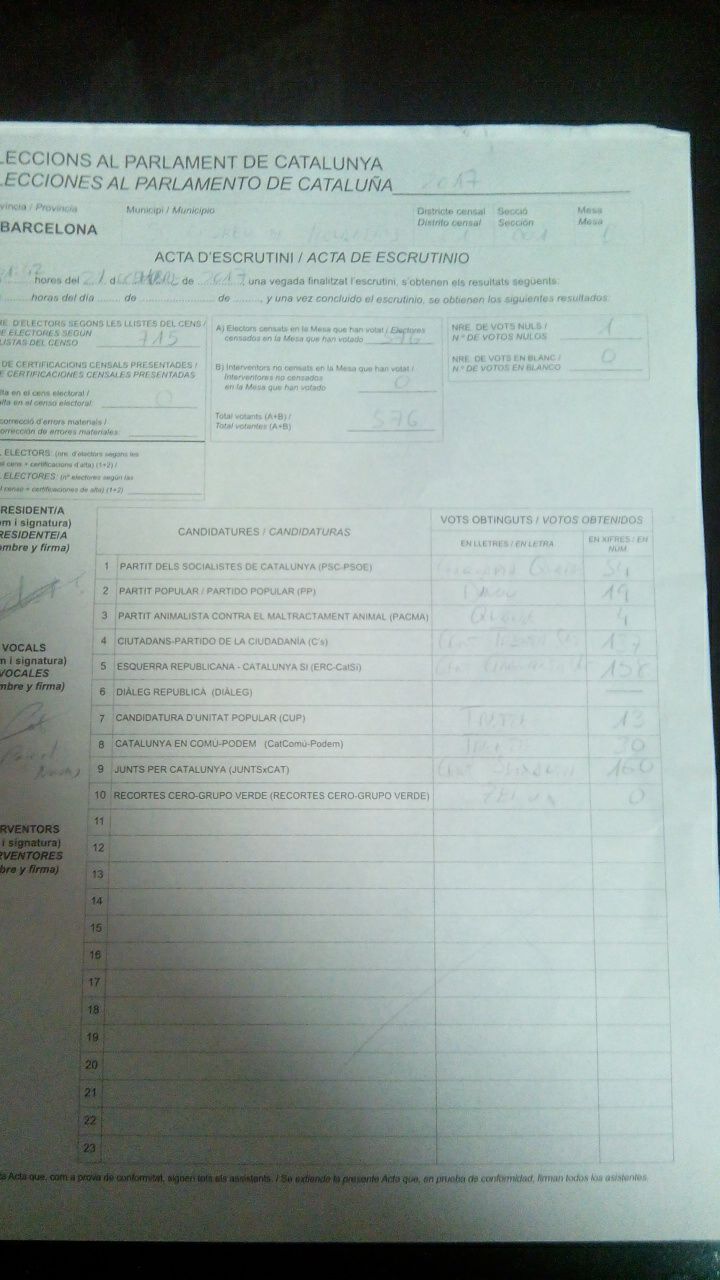 LECCIONS AL PARLAMENT DE CATALUNYA
LECCIONES AL PARLAMENTO DE CATALUÑA 2017
víncia / Provincia Municipi / Municipio Districte censal Secció Mesa
Distrito censal Sección Mesa
BARCELONA 1 001
ACTA D'ESCRUTINI / ACTA DE ESCRUTINIO
hores del 21 d de 2017, una vegada finalitzat l'escrutini, s'obtenen els resultats següents:
horas del día de de , y una vez concluido el escrutinio, se obtienen los siguientes resultados:
RE. D'ELECTORS SEGONS LES LLISTES DEL CENS /
E ELECTORES SEGÚN
LISTAS DEL CENSO 715
DE CERTIFICACIONS CENSALS PRESENTADES /
E CERTIFICACIONES CENSALES PRESENTADAS
lta en el cens electoral /
alta en el censo electoral: 0
correcció d'errors materials /
orrección de errores materiales:
. ELECTORS: (nre. d'electors segons les
el cens + certificacions d'alta) (1+2) /
. ELECTORES: (nº electores según las
l censo + certificaciones de alta) (1+2)
A) Electors censats en la Mesa que han votat / Electores
censados en la Mesa que han votado 576
B) Interventors no censats en la Mesa que han votat /
Interventores no censados
en la Mesa que han votado 0
Total votants (A+B) /
Total votantes (A+B) 576
NRE. DE VOTS NULS /
Nº DE VOTOS NULOS 1
NRE. DE VOTS EN BLANC /
Nº DE VOTOS EN BLANCO 0
RESIDENT/A
om i signatura)
RESIDENTE/A
ombre y firma)
VOCALS
m i signatura)
VOCALES
mbre y firma)
RVENTORS
i signatura)
RVENTORES
bre y firma)
CANDIDATURES / CANDIDATURAS VOTS OBTINGUTS / VOTOS OBTENIDOS
EN LLETRES / EN LETRA EN XIFRES / EN NÚM.
1 PARTIT DELS SOCIALISTES DE CATALUNYA (PSC-PSOE) 54
2 PARTIT POPULAR / PARTIDO POPULAR (PP) 19
3 PARTIT ANIMALISTA CONTRA EL MALTRACTAMENT ANIMAL (PACMA) 4
4 CIUTADANS-PARTIDO DE LA CIUDADANÍA (C's) 137
5 ESQUERRA REPUBLICANA - CATALUNYA SI (ERC-CatSi) 158
6 DIÀLEG REPUBLICÀ (DIÀLEG) —
7 CANDIDATURA D'UNITAT POPULAR (CUP) 13
8 CATALUNYA EN COMÚ-PODEM (CatComú-Podem) 30
9 JUNTS PER CATALUNYA (JUNTSxCAT) 160
10 RECORTES CERO-GRUPO VERDE (RECORTES CERO-GRUPO VERDE) 0
11
12
13
14
15
16
17
18
19
20
21
22
23
ta Acta que, com a prova de conformitat, signen tots els assistents. / Se extiende la presente Acta que, en prueba de conformidad, firman todos los asistentes.